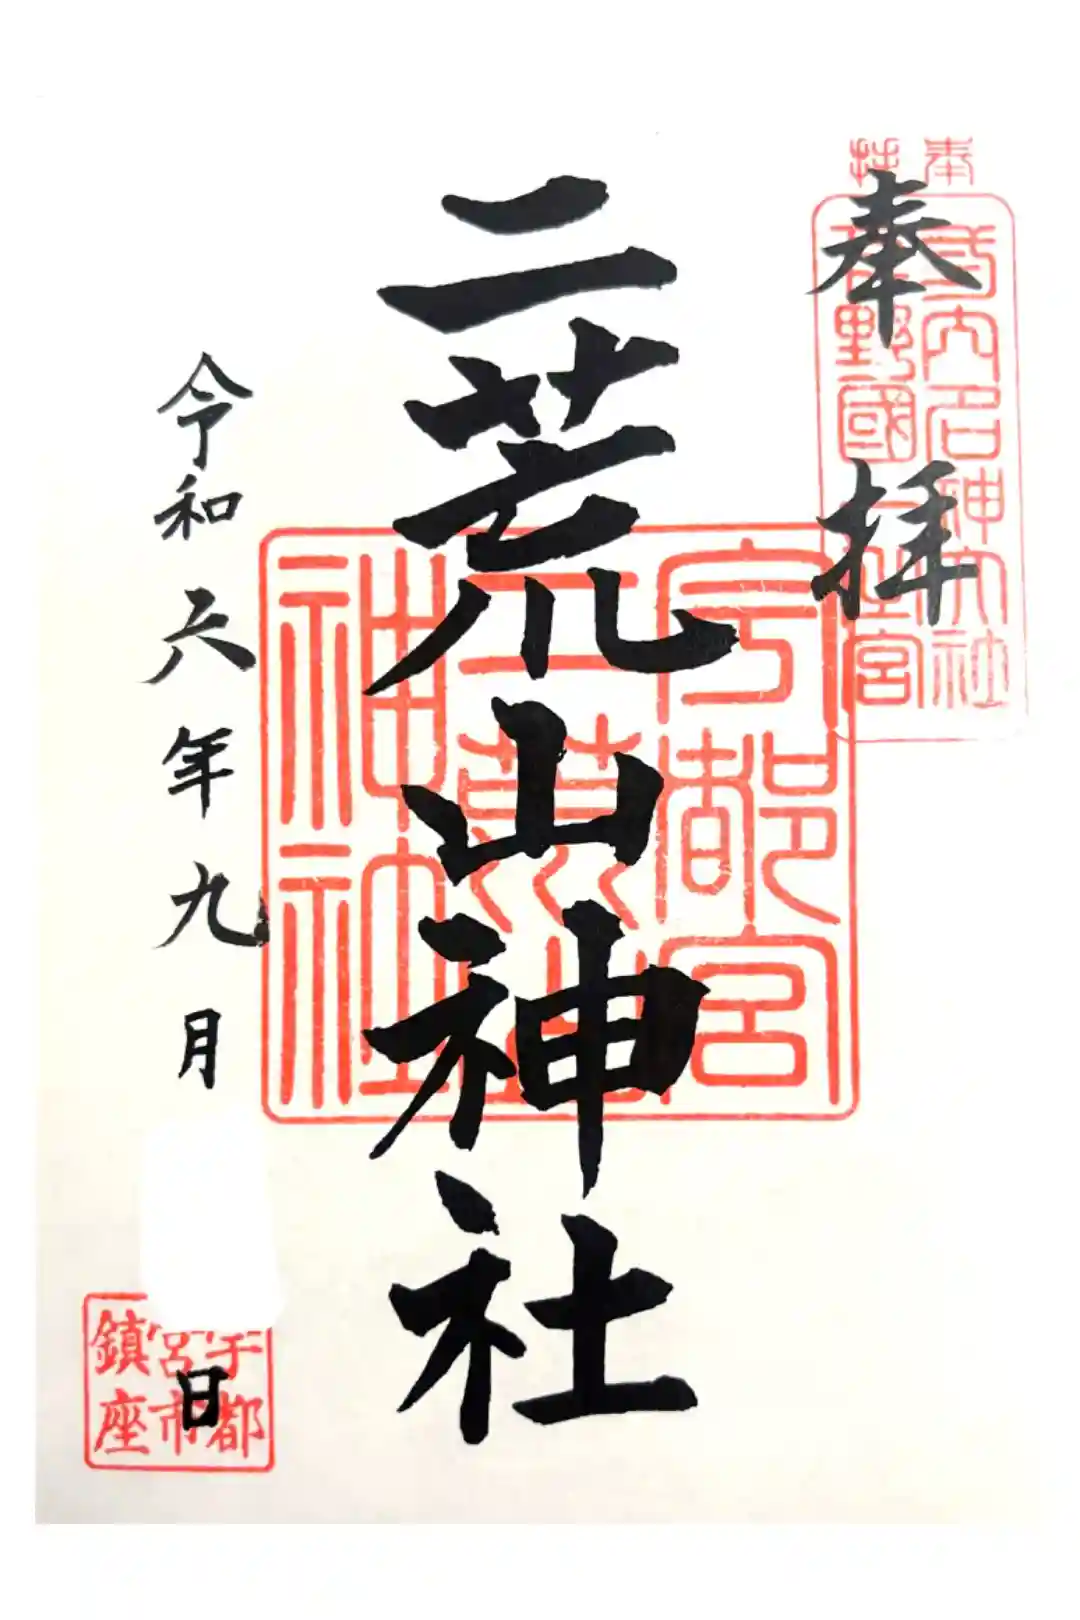 奉拝
奉拝
式内名神大社
下野國一之宮
二荒山神社
宇都宮
二荒山
神社
令和六年九月 日
宇都
宮市
鎮座